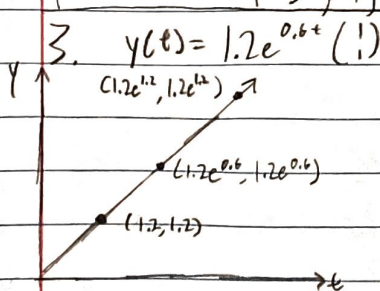 3. y(t) = 1.2e^{0.6t} (1 1)
y
(1.2e^{1.2}, 1.2e^{1.2})
(1.2e^{0.6}, 1.2e^{0.6})
(1.2, 1.2)
t